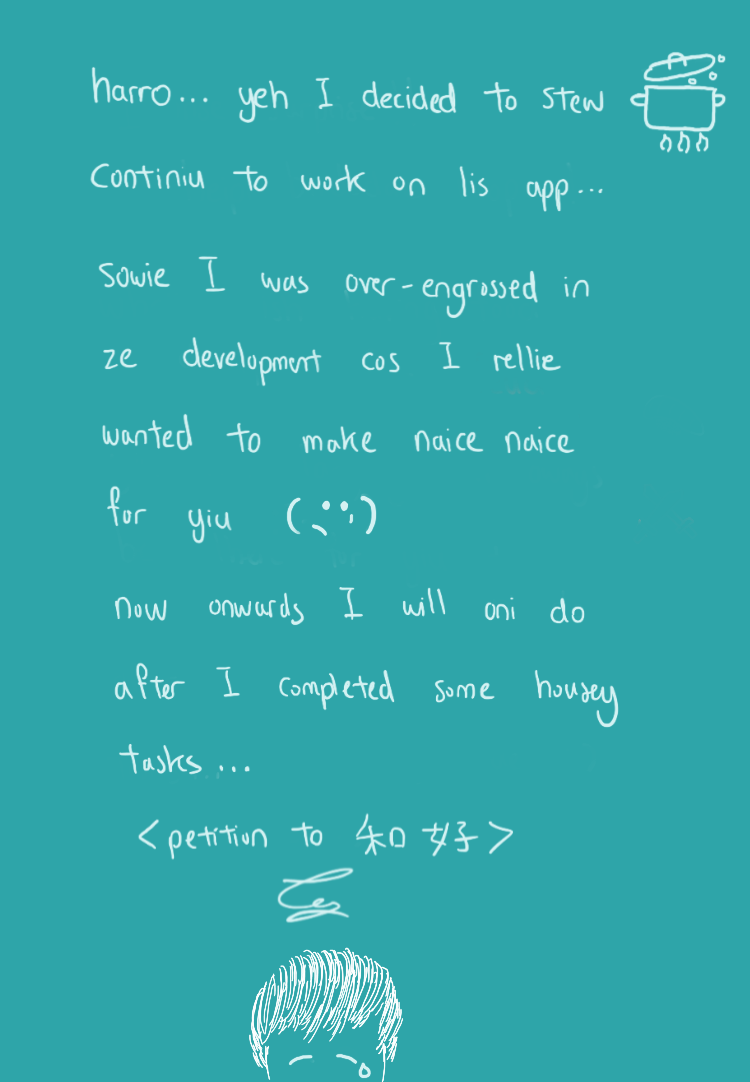 harro... yeh I decided to stew
continiu to work on lis app...
sowie I was over-engrossed in
ze development cos I rellie
wanted to make naice naice
for yiu
now onwards I will oni do
after I completed some housey
tasks...
<petition to 和好>